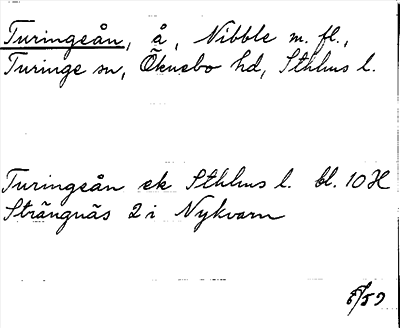 Turingeån, å, Nibble m. fl.,
Turinge sn, Öknebo hd, Sthlms l.
Turingeån ek Sthlms l. bl. 10 H
Strängnäs 2 i Nykvarn
/59